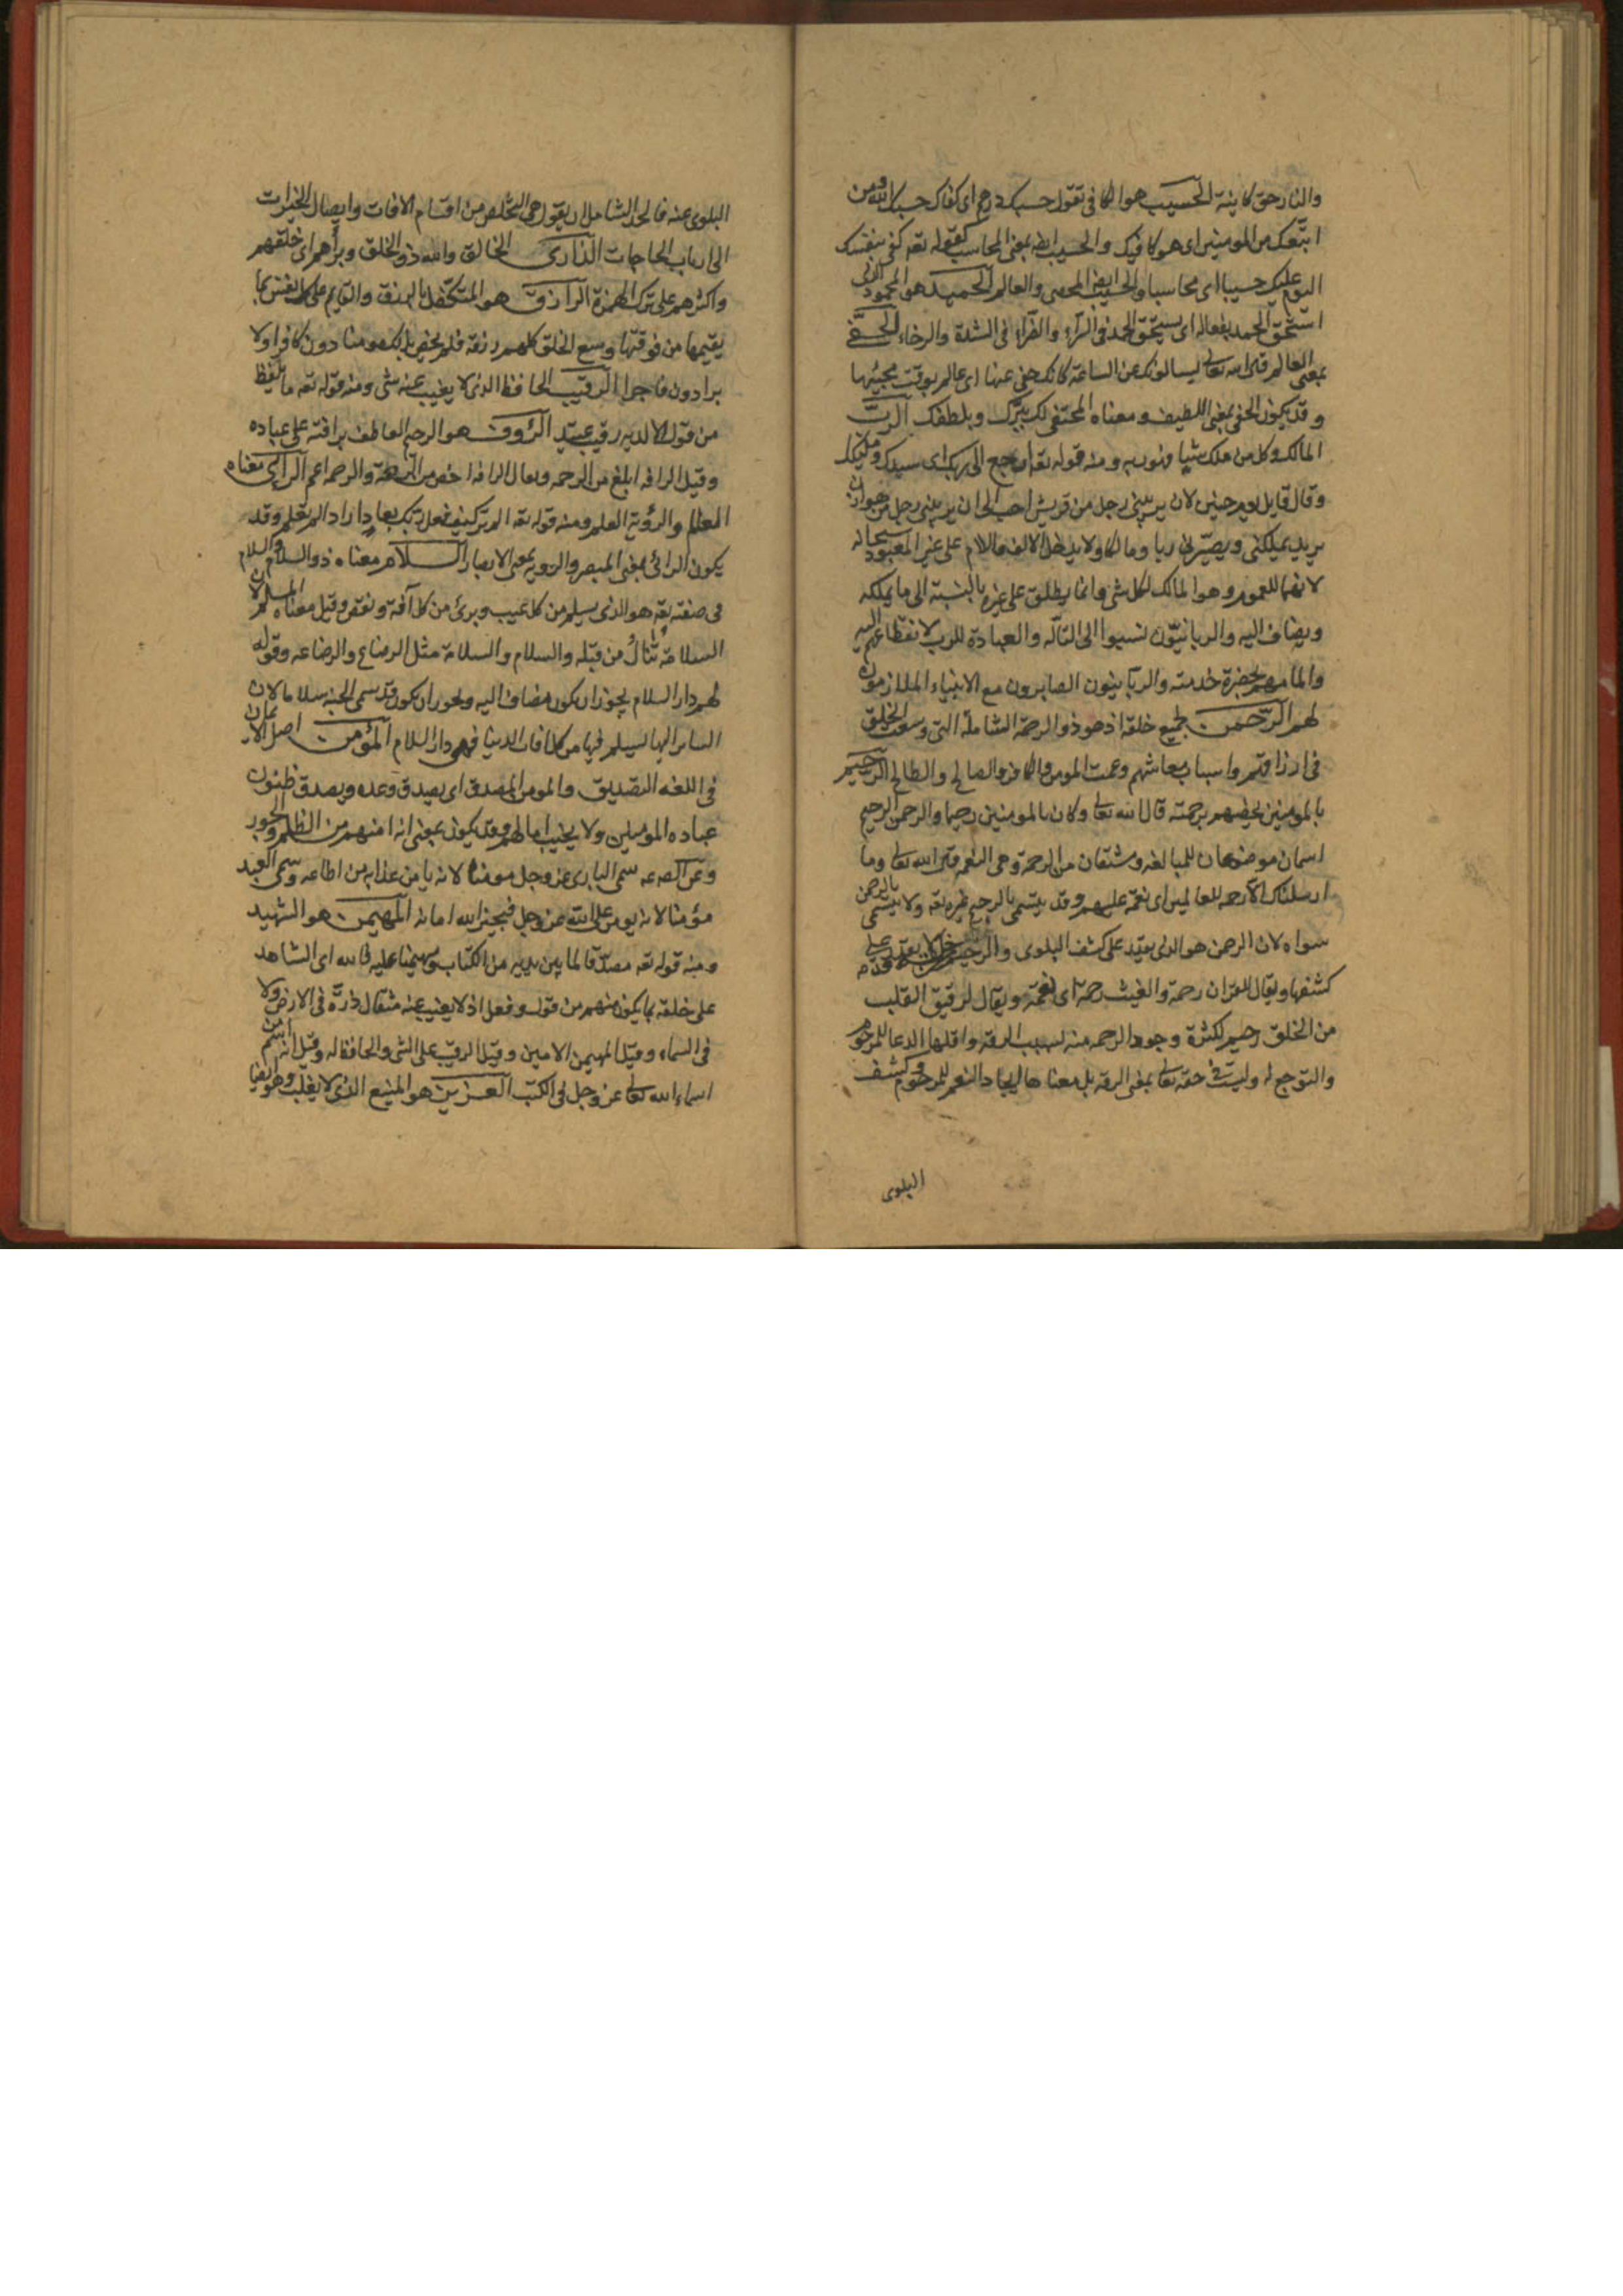 والنار حق كاينة الحسيب هو الكافى تقول حسبك درهم اى كفاك حسبك الله ومن
اتبعك من المومنين اى هو كافيك والحسيب ايضه بمعنى المحاسب كقوله تعه كفى بنفسك
اليوم عليك حسيبا اى محاسبا والحسيب ايضا المحصى والعالم الحميد هو المحمود الذى
استحق الحمد بفعاله اى يستحق الحمد فى السرآء والضرآء فى الشدة والرخاء الحفى
بمعنى العالم قال الله تعالى يسالونك عن الساعة كانك حفى عنها اى عالم بوقت مجيئها
و قد يكون الحفى بمعنى اللطيف و معناه المحتفى لك ببرك وبلطفك الرب
المالك وكل من ملك شيئا فهو ربه و منه قوله تعه ارجع الى ربك اى سيدك ومليكك
وقال قايل يوم حنين لان يربينى رجل من قريش احب الى ان يربينى رجل من هوازن
يريد يملكنى ويصير لى ربا ومالكا ولا يدخل الالف واللام على غير المعبود سبحانه
لانهما للعموم وهو المالك لكل شى وانما يطلق على غيره بالنسبة الى ما يملكه
ويضاف اليه والربانيون نسبوا الى التاله والعبادة للرب لانقطاعهم اليه
والمامهم بحضرة خدمته والربانيون الصابرون مع الانبياء الملازمون
لهم الرحمن بجميع خلقه اذ هو ذو الرحمة الشاملة التى وسعت الخلق
فى ارزاقهم واسباب معاشهم وعمت المومن والكافر والصالح والطالح الرحيم
بالمومنين يخصهم برحمته قال الله تعا وكان بالمومنين رحيما والرحمن الرحيم
اسمان موضوعان للمبالغه ومشتقان من الرحمة وهى النعمه قال الله تعالى وما
ارسلناك الا رحمه للعالمين اى نعمه عليهم وقد يتسمى بالرحيم غيره تعه ولا يتسمى بالرحمن
سواه لان الرحمن هو الذى يقدر على كشف البلوى والرحيم من خلقه قد لا يقدر على
كشفها ويقال للقران رحمة والغيث رحمة اى نعمة ويقال لرقيق القلب
من الخلق رحيم لكثرة وجود الرحمه منه بسبب الرقه واقلها الدعا للمرحوم
والتوجع له وليست فى حقه تعالى بمعنى الرقه بل معناها ايجاد النعم للمرحوم وكشف
البلوى
البلوى عنه فالحد الشامل ان يقول هى التخلص من اقسام الافات وايصال الخيرات
الى ارباب الحاجات الذارى الخالق والله ذرا الخلق وبراهم اى خلقهم
واكثرهم على ترك الهمزة الرازق هو المتكفل بالرزق والقايم على كل نفس بما
يقيمها من قوتها وسع الخلق كلهم رزقه فلم يخص بذلك مومنا دون كافر ولا
برا دون فاجرا الرقيب الحافظ الذى لا يغيب عنه شى ومنه قوله تعه ما يلفظ
من قول الا لديه رقيب عتيد الرؤوف هو الرحيم العاطف برافته على عباده
وقيل الرافه ابلغ من الرحمه ويقال الرافه اخص من الرحمة والرحمه اعم الرائى معناه
العالم والرؤية العلم ومنه قوله تعه الم تر كيف فعل ربك بعاد اراد الم تعلم وقد
يكون الرائى بمعنى المبصر والرويه بمعنى الابصار السلام معناه ذو السلام والسلام
فى صفته تعه هو الذى يسلم من كل عيب وبرئ من كل آفة ونقص وقيل معناه المسلم لان
السلامة تنال من قبله والسلام والسلامة مثل الرضاع والرضاعه وقوله
لهم دار السلام يجوز ان يكون مضافا اليه ويجوز ان يكون قد سمى الجنه سلاما لان
الساير اليها يسلم فيها من كل افات الدنيا فهى دار السلام المؤمن اصل الايمان
فى اللغه التصديق والمومن المصدق اى يصدق وعده ويصدق ظنون
عباده المومنين ولا يخيب امالهم وقد يكون بمعنى انه امنهم من الظلم والجور
وعن الصه عه سمى البارى عز وجل مومنا لانه يامن عذابه من اطاعه وسمى العبد
مؤمنا لانه يومن على الله عز وجل فيجيز الله امانه المهيمن هو الشهيد
ومنه قوله تعه مصدقا لما بين يديه من الكتاب ومهيمنا عليه فالله اى الشاهد
على خلقه بما يكون منهم من قول وفعل اذ لا يغيب عنه مثقال ذرة فى الارض ولا
فى السماء وقيل المهيمن الامين وقيل الرقيب على الشى والحافظ له وقيل انه اسم من
اسماء الله تعالى عز وجل فى الكتب العزيز هو المنيع الذى لا يغلب وهو ايضا